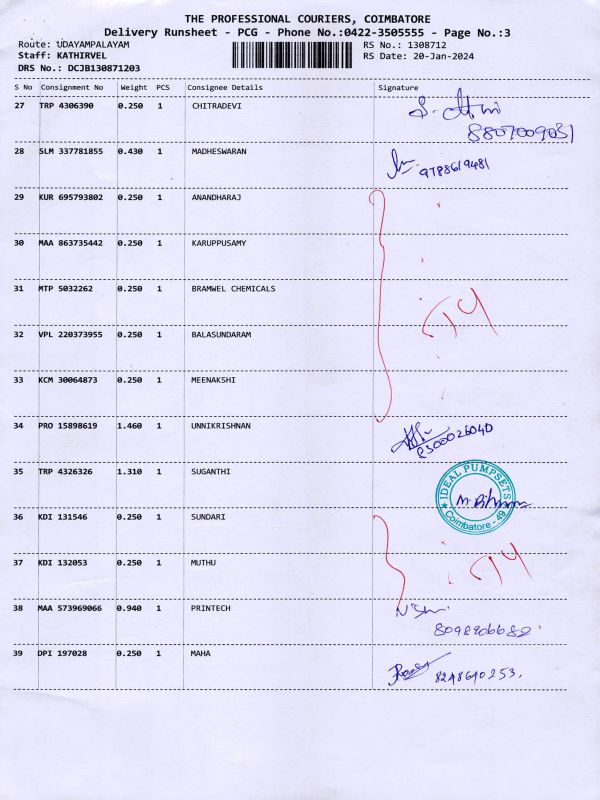 THE PROFESSIONAL COURIERS, COIMBATORE
Delivery Runsheet - PCG - Phone No.:0422-3505555 - Page No.:3
Route: UDAYAMPALAYAM RS No.: 1308712
Staff: KATHIRVEL RS Date: 20-Jan-2024
DRS No.: DCJB130871203
S No Consignment No Weight PCS Consignee Details Signature
27 TRP 4306390 0.250 1 CHITRADEVI
8807009031
28 SLM 337781855 0.430 1 MADHESWARAN
9788619481
29 KUR 695793802 0.250 1 ANANDHARAJ
30 MAA 863735442 0.250 1 KARUPPUSAMY
31 MTP 5032262 0.250 1 BRAMWEL CHEMICALS
32 VPL 220373955 0.250 1 BALASUNDARAM
33 KCM 30064873 0.250 1 MEENAKSHI
34 PRO 15898619 1.460 1 UNNIKRISHNAN
35 TRP 4326326 1.310 1 SUGANTHI
IDEAL PUMPSETS
Coimbatore - 49
36 KDI 131546 0.250 1 SUNDARI
37 KDI 132053 0.250 1 MUTHU
38 MAA 573969066 0.940 1 PRINTECH
39 DPI 197028 0.250 1 MAHA
8248640253.